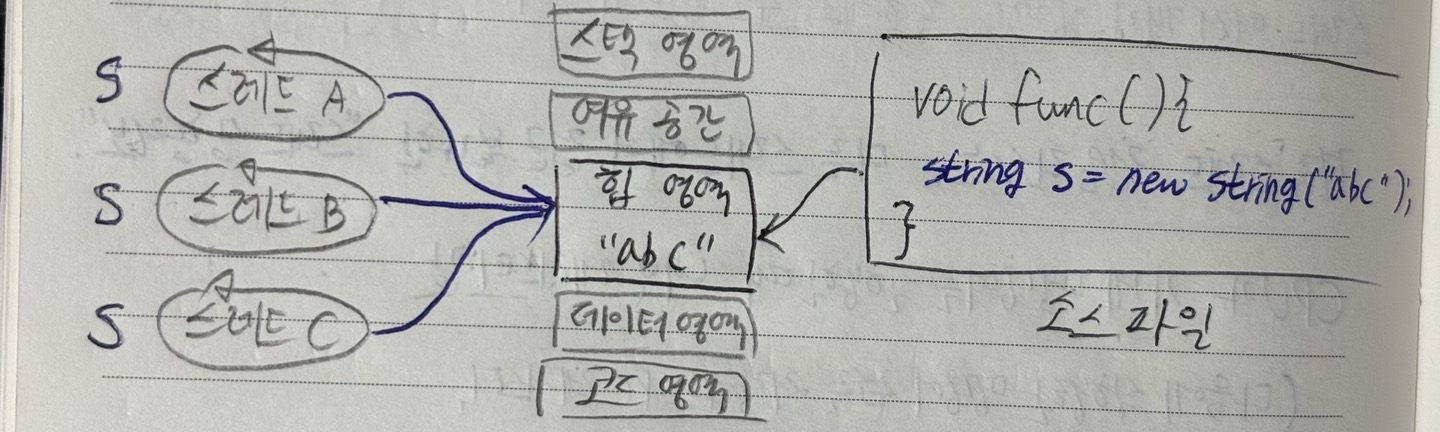 S
스레드 A
S
스레드 B
S
스레드 C
스택 영역
여유 공간
힙 영역
"abc"
데이터 영역
코드 영역
void func(){
string s = new string("abc");
}
소스 파일